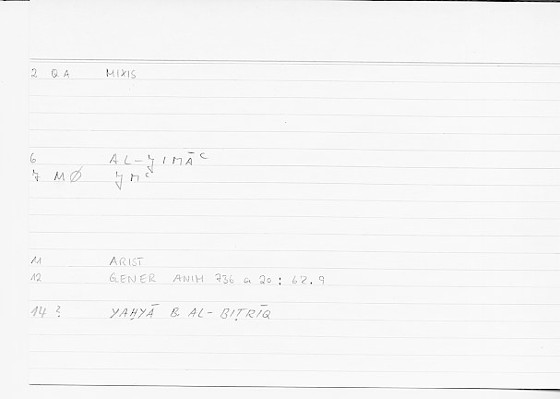 2 QA MIXIS
6 AL-J̌IMĀᶜ
7 MØ J̌Mᶜ
11 ARIST
12 GENER ANIM 736 a 20 : 62.9
14 ? YAḤYĀ B AL-BIṬRĪQ